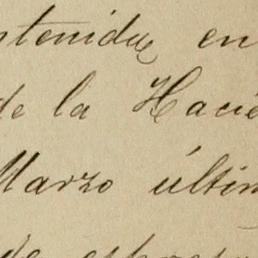 ntenidas en
de la Hacie
Marzo últim
de